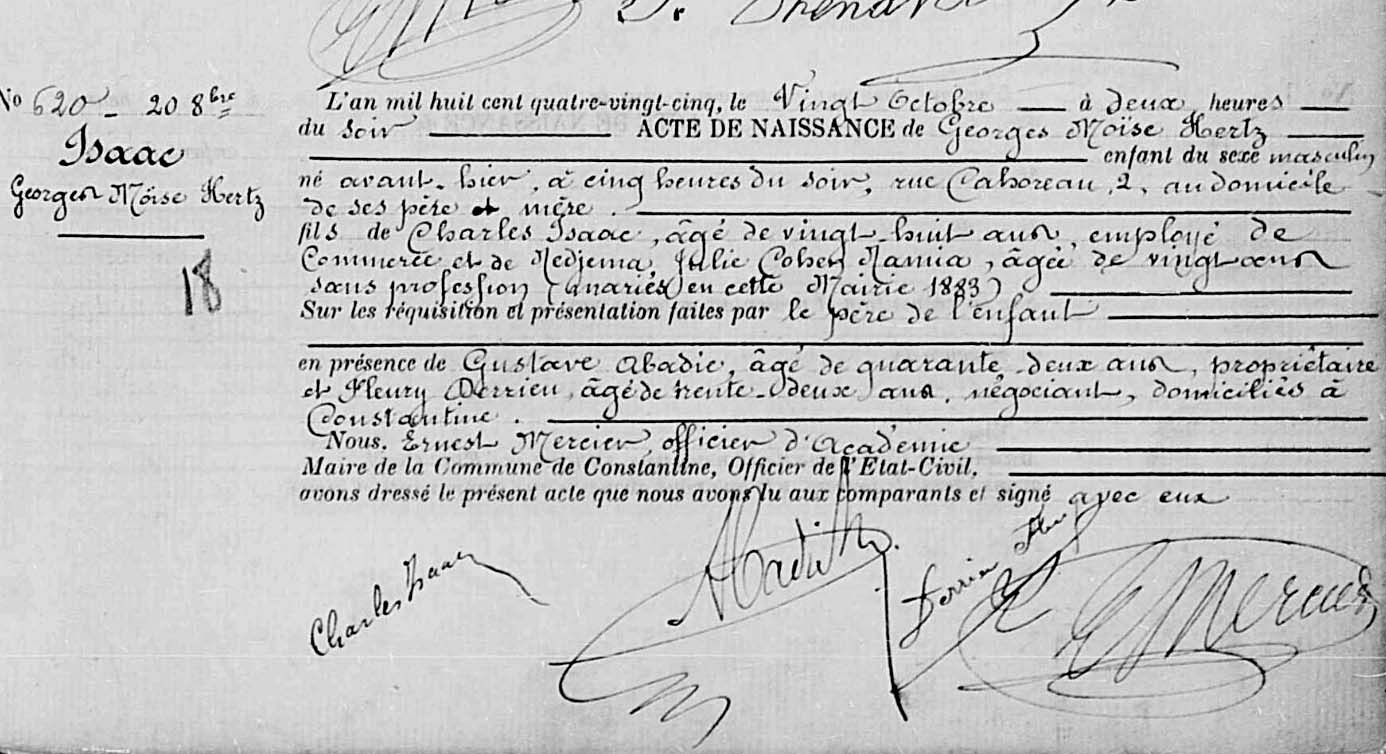 No 620 - 20 8bre
Isaac
Georges Moïse Hertz
18
L'an mil huit cent quatre-vingt-cinq, le Vingt Octobre à deux heures
du soir ACTE DE NAISSANCE de Georges Moïse Hertz
enfant du sexe masculin
né avant-hier, à cinq heures du soir, rue Cahoreau, 2, au domicile
de ses père et mère.
fils de Charles Isaac, âgé de vingt-huit ans, employé de
Commerce et de Nedjema, Julie Cohen Namia, âgée de vingt ans
sans profession (mariés en cette Mairie 1883)
Sur les réquisition et présentation faites par le père de l'enfant
en présence de Gustave Abadie, âgé de quarante-deux ans, propriétaire
et Fleury Derrieu, âgé de trente-deux ans, négociant, domiciliés à
Constantine.
Nous, Ernest Mercier, officier d'Académie
Maire de la Commune de Constantine, Officier de l'Etat-Civil,
avons dressé le présent acte que nous avons lu aux comparants et signé avec eux
Charles Isaac
Abadie
EMercier